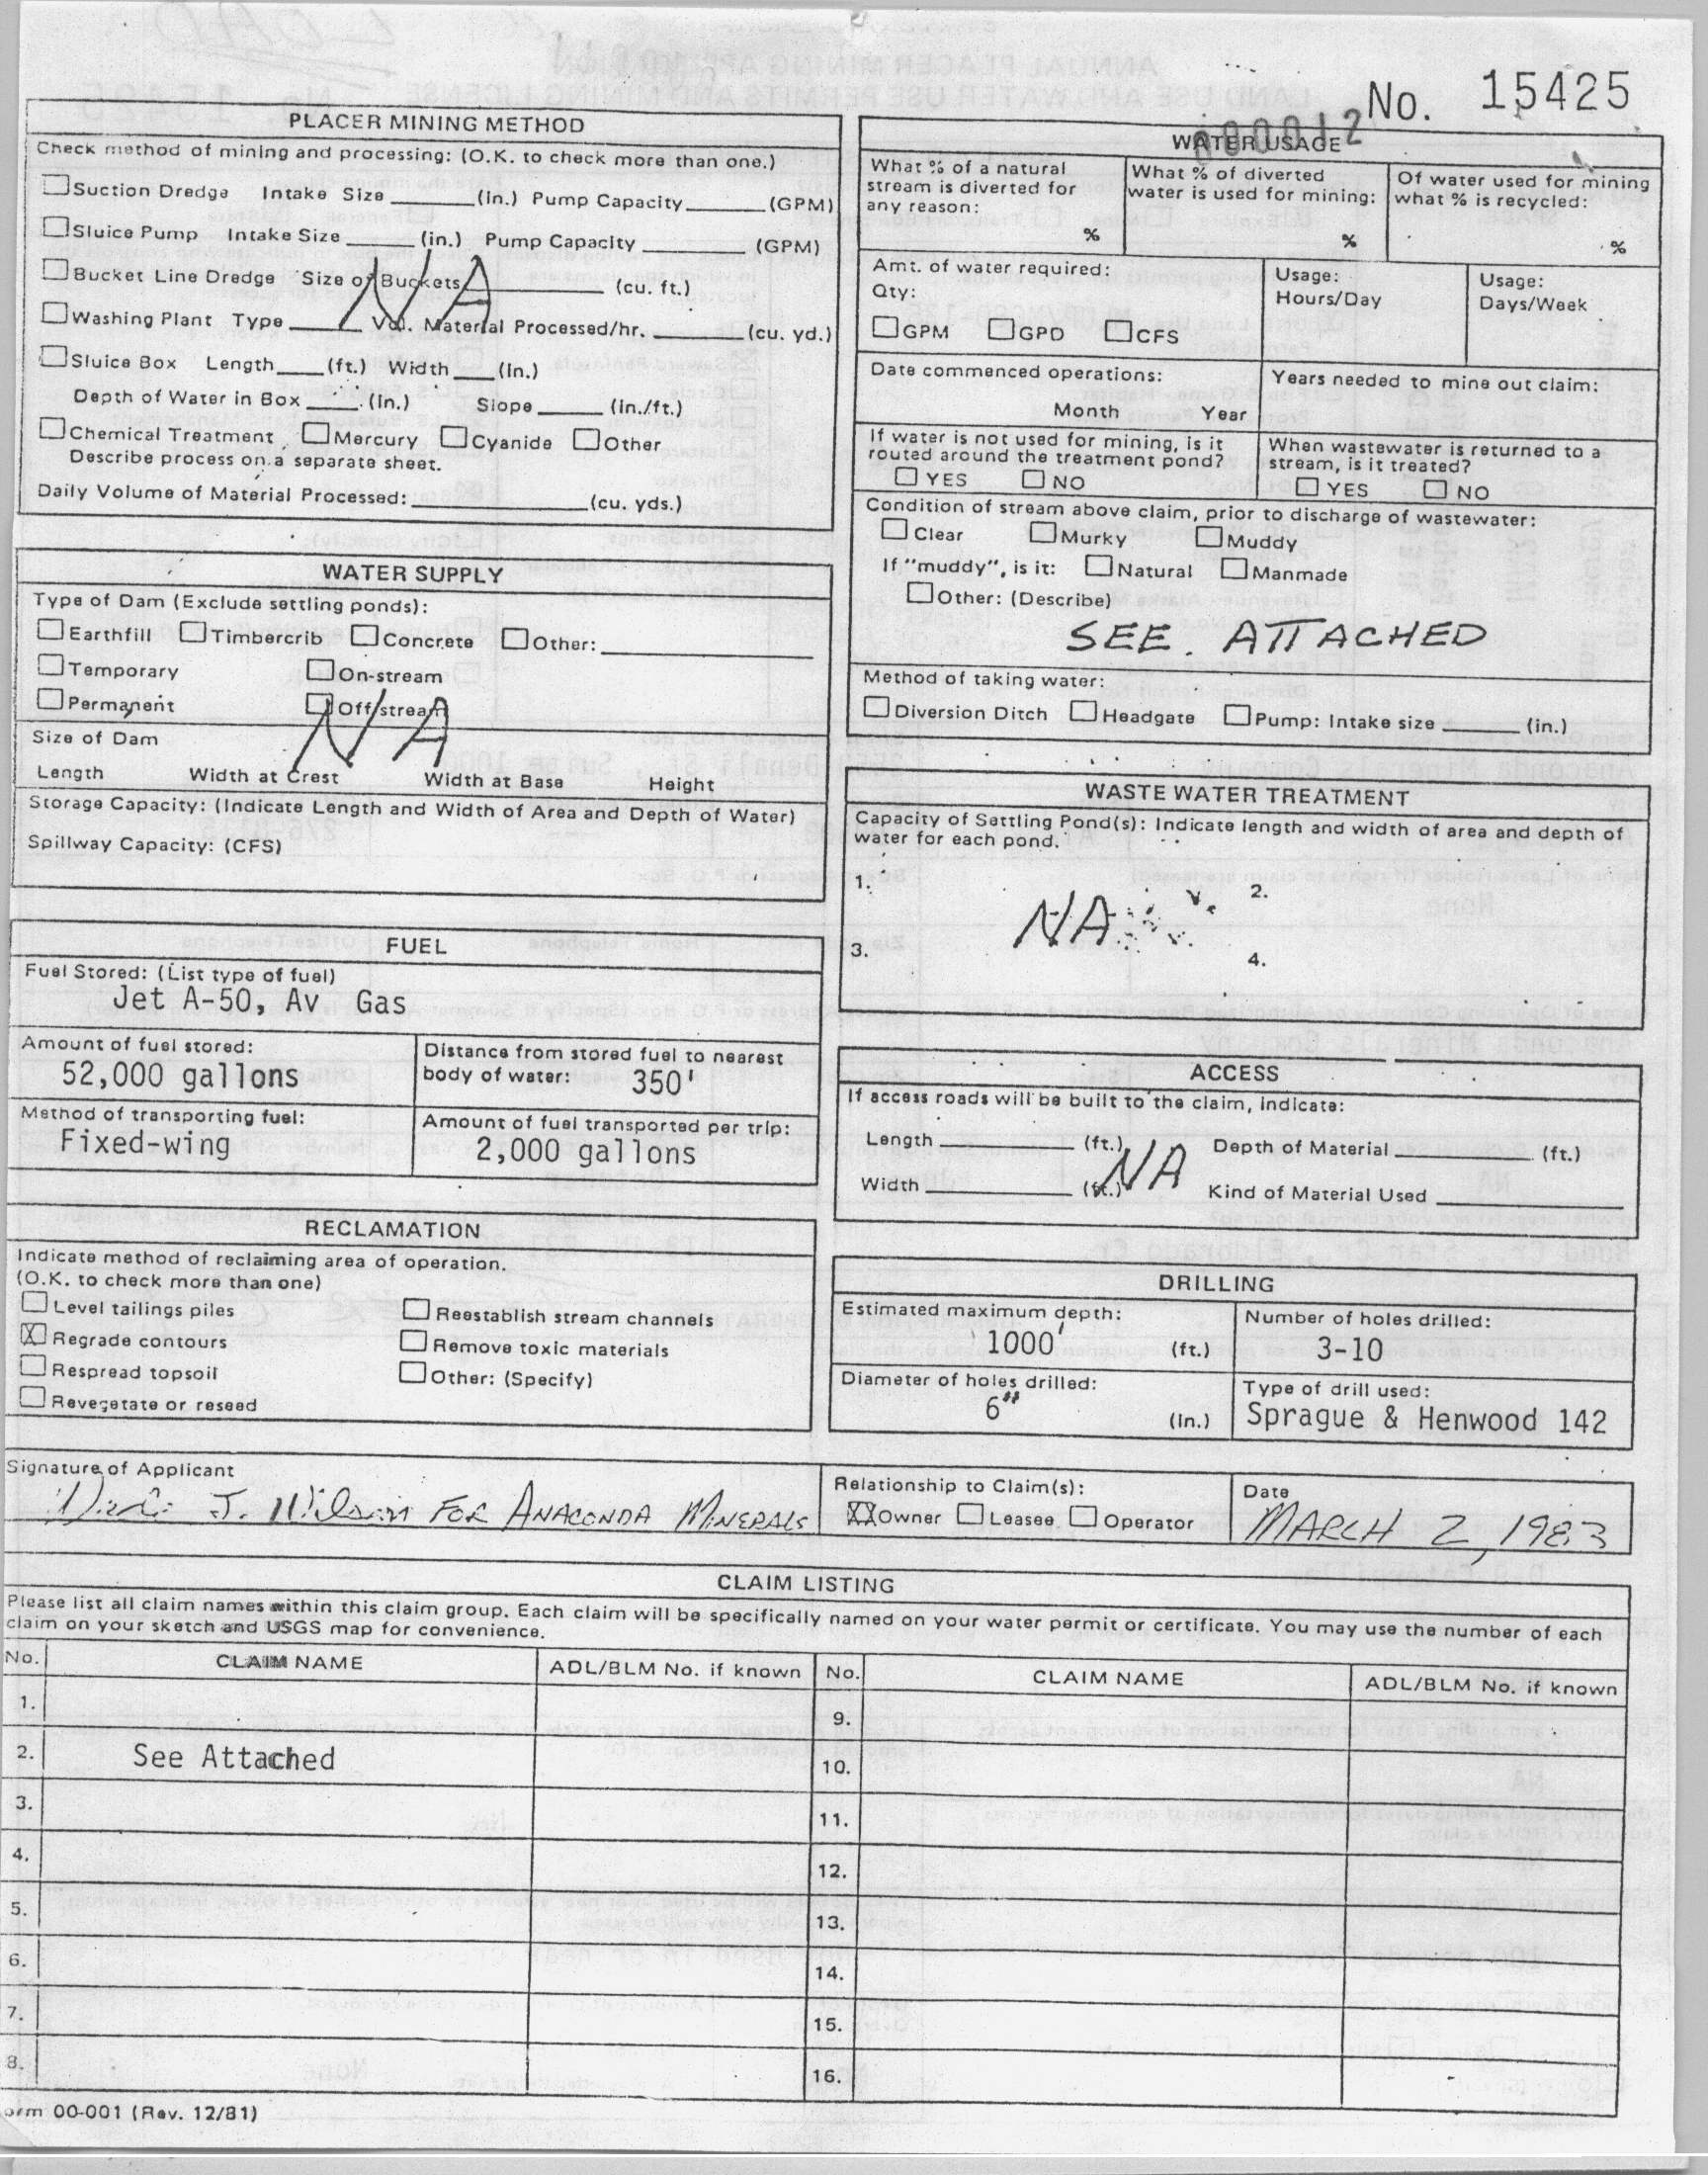 No. 15425
000012
PLACER MINING METHOD
Check method of mining and processing: (O.K. to check more than one.)
Suction Dredge Intake Size ______ (in.) Pump Capacity ______ (GPM)
Sluice Pump Intake Size ______ (in.) Pump Capacity ______ (GPM)
Bucket Line Dredge Size of Buckets ______ (cu. ft.)
NA
Washing Plant Type ______ Vol. Material Processed/hr. ______ (cu. yd.)
Sluice Box Length ____ (ft.) Width ____ (in.)
Depth of Water in Box ____ (in.) Slope ____ (in./ft.)
Chemical Treatment Mercury Cyanide Other
Describe process on a separate sheet.
Daily Volume of Material Processed: ______ (cu. yds.)
WATER SUPPLY
Type of Dam (Exclude settling ponds):
Earthfill Timbercrib Concrete Other: ______
Temporary On-stream
Permanent Off stream
NA
Size of Dam
Length Width at Crest Width at Base Height
Storage Capacity: (Indicate Length and Width of Area and Depth of Water)
Spillway Capacity: (CFS)
FUEL
Fuel Stored: (List type of fuel)
Jet A-50, Av Gas
Amount of fuel stored:
52,000 gallons
Distance from stored fuel to nearest
body of water: 350'
Method of transporting fuel:
Fixed-wing
Amount of fuel transported per trip:
2,000 gallons
RECLAMATION
Indicate method of reclaiming area of operation.
(O.K. to check more than one)
Level tailings piles Reestablish stream channels
X Regrade contours Remove toxic materials
Respread topsoil Other: (Specify)
Revegetate or reseed
WATER USAGE
What % of a natural
stream is diverted for
any reason:
%
What % of diverted
water is used for mining:
%
Of water used for mining
what % is recycled:
%
Amt. of water required:
Qty:
GPM GPD CFS
Usage:
Hours/Day
Usage:
Days/Week
Date commenced operations:
Month Year
Years needed to mine out claim:
If water is not used for mining, is it
routed around the treatment pond?
YES NO
When wastewater is returned to a
stream, is it treated?
YES NO
Condition of stream above claim, prior to discharge of wastewater:
Clear Murky Muddy
If "muddy", is it: Natural Manmade
Other: (Describe)
SEE. ATTACHED
Method of taking water:
Diversion Ditch Headgate Pump: Intake size ______ (in.)
WASTE WATER TREATMENT
Capacity of Settling Pond(s): Indicate length and width of area and depth of
water for each pond.
1. 2.
NA
3. 4.
ACCESS
If access roads will be built to the claim, indicate:
Length ______ (ft.) Depth of Material ______ (ft.)
NA
Width ______ (ft.) Kind of Material Used ______
DRILLING
Estimated maximum depth:
1000' (ft.)
Number of holes drilled:
3-10
Diameter of holes drilled:
6" (in.)
Type of drill used:
Sprague & Henwood 142
Signature of Applicant
J. Wilson FOR ANACONDA MINERALS
Relationship to Claim(s):
XX Owner Leasee Operator
Date
MARCH 2, 1983
CLAIM LISTING
Please list all claim names within this claim group. Each claim will be specifically named on your water permit or certificate. You may use the number of each
claim on your sketch and USGS map for convenience.
No. CLAIM NAME ADL/BLM No. if known No. CLAIM NAME ADL/BLM No. if known
1. 9.
2. See Attached 10.
3. 11.
4. 12.
5. 13.
6. 14.
7. 15.
8. 16.
orm 00-001 (Rev. 12/81)